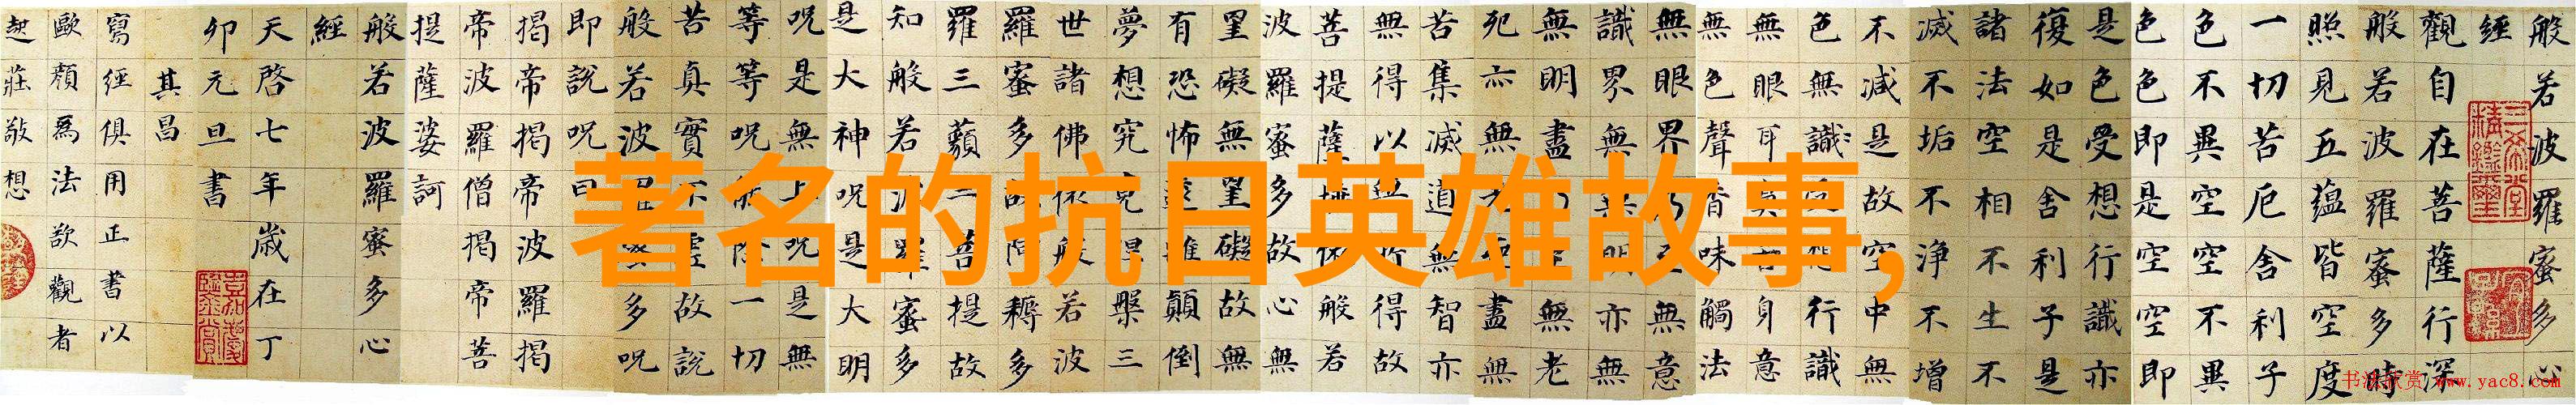 般若波羅蜜多心
經
觀自在菩薩行深
般若波羅蜜多時
照見五蘊皆空度
一切苦厄舍利子
色不異空空不異
色色即是空空即
是色受想行識亦
復如是舍利子是
諸法空相不生不
滅不垢不淨不增
不減是故空中無
色無識受想行識
無眼耳鼻舌身意
無色聲香味觸法
無眼界乃至無意
識界無無明亦無
無明盡乃至無老
死亦無老死盡無
苦集滅道無智亦
無得以無所得故
菩提薩埵依般若
波羅蜜多故心無
罣礙無罣礙故無
有恐怖遠離顛倒
夢想究竟涅槃三
世諸佛依般若波
羅蜜多故阿耨多
羅三藐三菩提故
知般若波羅蜜多
是大神呪是大明
呪是無上呪是無
等等呪能除一切
苦真實不虛故說
般若波羅蜜多呪
即說呪曰
揭帝揭帝波羅揭
帝波羅僧揭帝菩
提薩婆訶
般若波羅蜜多心
經
天啓七年歲在丁
卯元旦書
其昌
寫經俱用正書以
歐顏爲法欲觀者
起莊敬想
著名的抗日英雄故事,
书法欣赏 www.yac8.com